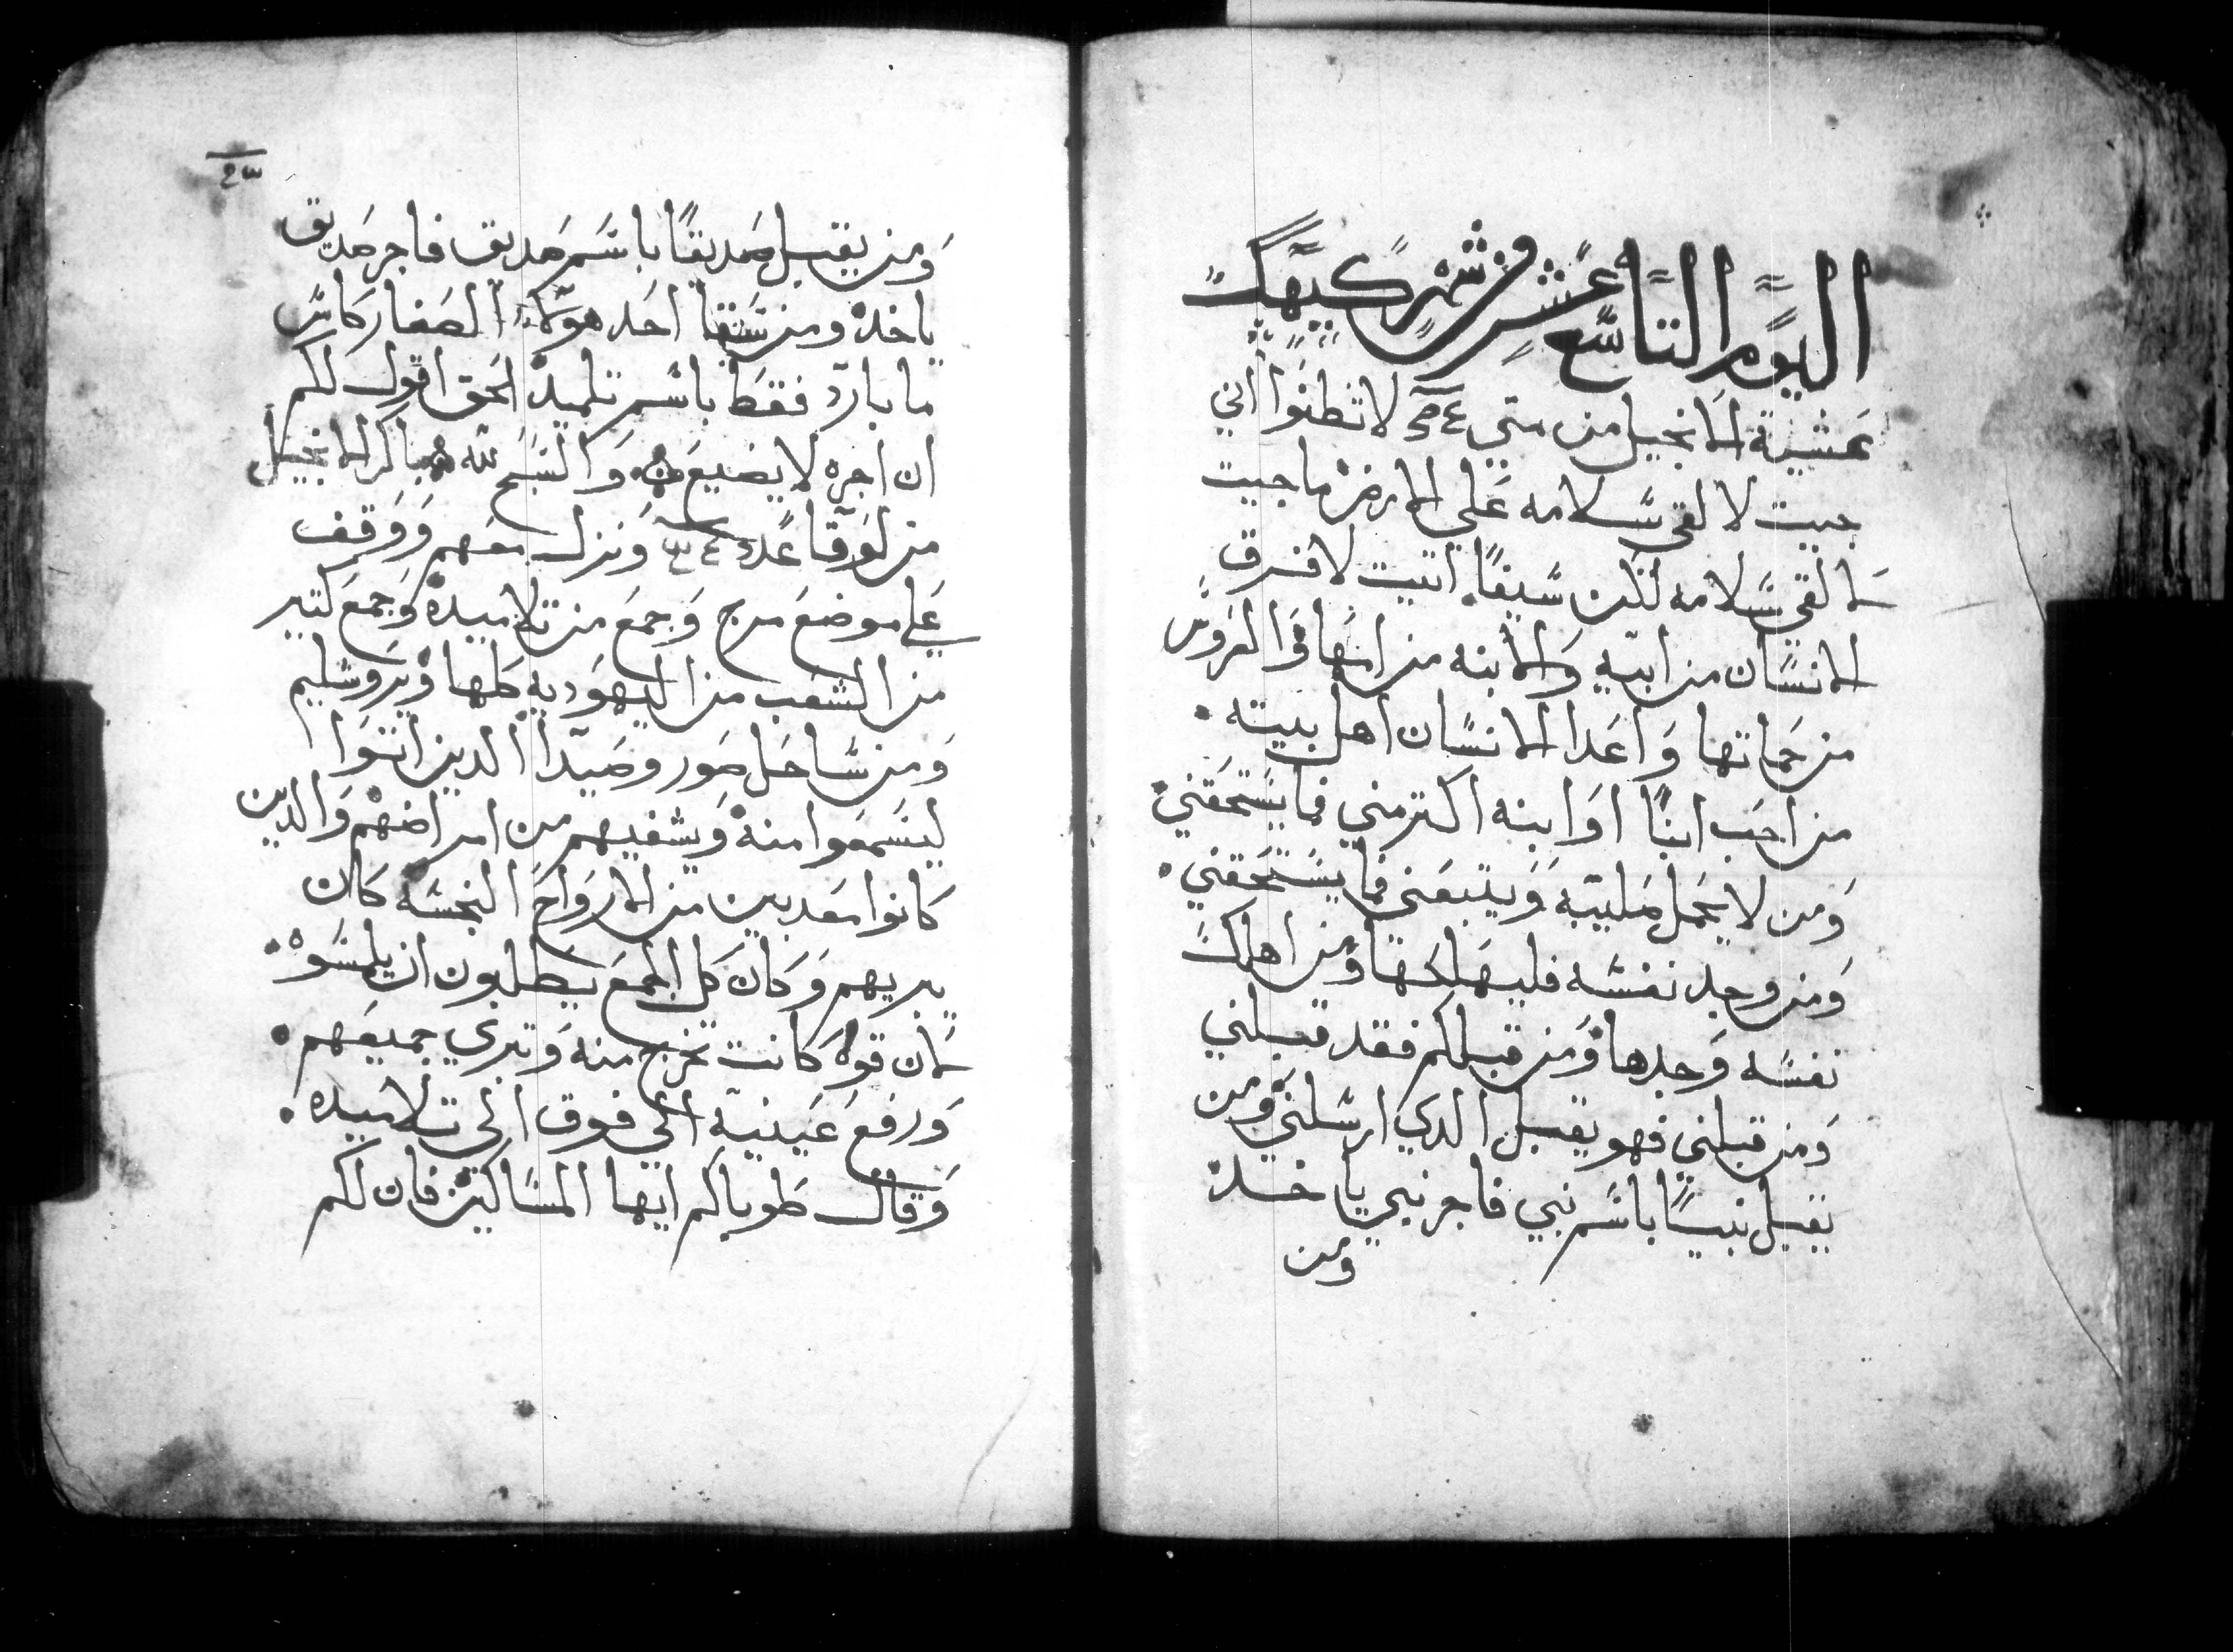 اليوم التاسع عشر من شهر كيهك
عشية الانجيل من متي لا تظنوا اني
جيت لالقي سلامه علي الارض ما جيت
لالقي سلامه لكن سيفًا اتيت لافرق
الانسان من ابيه والابنه من امها والعروس
من حماتها واعدا الانسان اهل بيته
من احب ابنًا او ابنه اكتر مني فما يستحقني
ومن لا يحمل صليبه ويتبعني فما يستحقني
ومن وجد نفسه فليهلكها ومن اهلك
نفسه وجدها ومن قبلكم فقد قبلني
ومن قبلني فهو يقبل الدي ارسلني ومن
يقبل نبيًا باسم نبي فاجر نبي ياخده
ومن
ومن يقبل صديقًا باسم صديق فاجر صديق
ياخده ومن سقا احد هولاء الصغار كاس
ما بارد فقط باسم تلميد الحق اقول لكم
ان اجره لا يضيع والسبح لله باكر الانجيل
من لوقا ونزل معهم ووقف
علي موضع مرج وجمع من تلاميده وجمع كتير
من الشعب من اليهوديه كلها ويروشليم
ومن ساحل صور وصيدا الدين اتوا
ليسمعوا منه ويشفيهم من امراضهم والدين
كانوا معدبين من الارواح النجسه كان
يبريهم وكان كل الجمع يطلبون ان يلمسوه
لان قوه كانت تخرج منه وتبري جميعهم
ورفع عينيه الي فوق الي تلاميده
وقال طوباكم ايها المساكين فان لكم